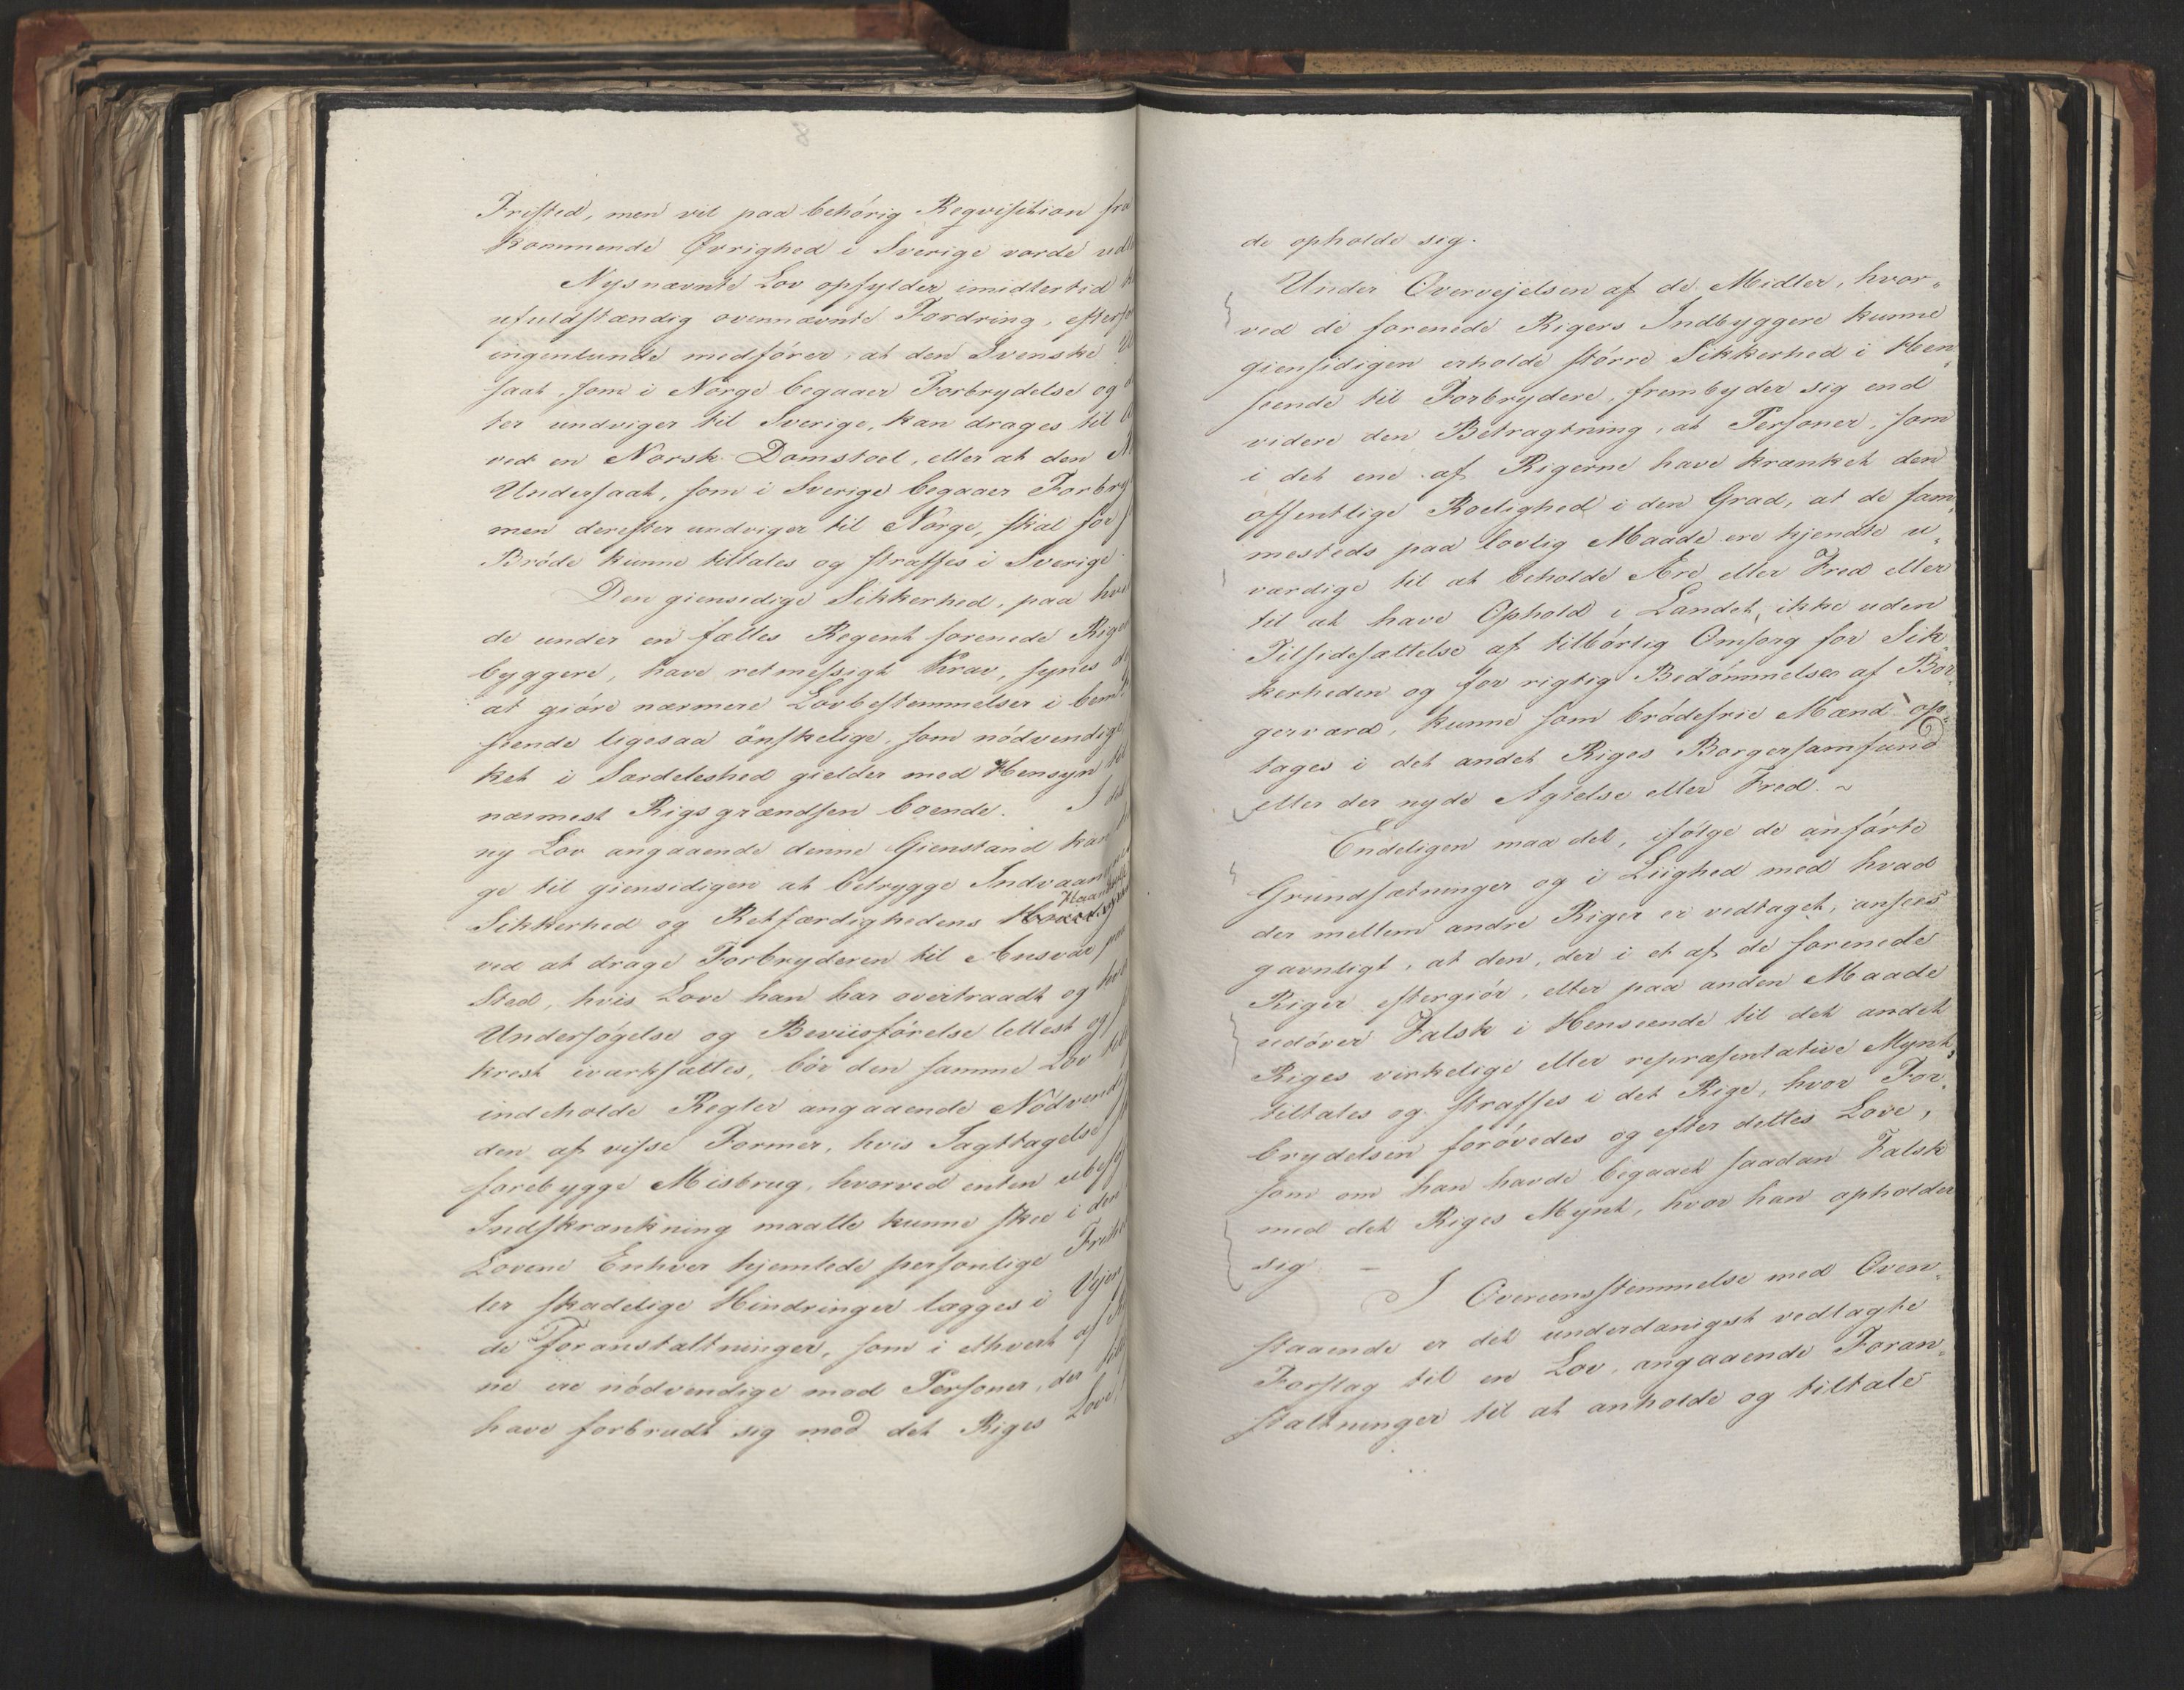 Fristed, men vil paa behörig Reqvisition fra
kommende Øvrighed i Sverige vorde udle
Nysnævnte Lov opfylder imidlertid
ufuldstændig ovennævnte Fordring, efters
ingenlunde medförer, at den Svenske U
saat, som i Norge begaaer Forbrydelse og
ter undviger til Sverige, kan drages til
ved en Norsk Domstoel, eller at den
Undersaat, som i Sverige begaaer Forbry
men derefter undviger til Norge, skal for
Bröde kunne tiltales og straffes i Sverige.
Den giensidige Sikkerhed, paa hvi
de under en fælles Regent forenede Rige
byggere, have retmessigt Krav, synes
at giöre nærmere Lovbestemmelser i bem
seende ligesaa önskelige, som nödvendige
ket i Særdeleshed gielder med Hensyn til
nærmest Rigsgrændsen boende. I det
ny Lov angaaende denne Gienstand kan
ge til giensidigen at betrygge Indvaan
Haandhæ
Sikkerhed og Retfærdighedens
ved at drage Forbryderen til Ansvar paa
Sted, hvis Love han har overtraadt og hvor
Undersögelse og Beviisförelse lettest og
krest iværksættes, bör den samme Lov till
indeholde Regler angaaende Nödvendig
den af visse Former, hvis Iagttagelse
forebygge Misbrug, hvorved enten ubeföj
Indskrænkning maatte kunne skee i den
Lovene Enhver hjemlede personlige Frihe
ler skadelige Hindringer lægges i Vejen
de Foranstaltninger, som i ethvert af
ne ere nödvendige mod Personer, der
have forbrudt sig mod det Riges Love,
de opholde sig.
Under Overvejelsen af de Midler, hvor„
ved de forenede Rigers Indbyggere kunne
giensidigen erholde större Sikkerhed i Hen„
seende til Forbrydere, frembyder sig end
videre den Betragtning, at Personer, som
i det ene af Rigerne have krænket den
offentlige Roelighed i den Grad, at de sam„
mesteds paa lovlig Maade ere kjendte u„
værdige til at beholde Ære eller Fred eller
til at have Ophold i Landet, ikke uden
Tilsidesættelse af tilbörlig Omsorg for Sik„
kerheden og for rigtig Bedömmelse af Bor„
gerværd, kunne som brödefrie Mænd op„
tages i det andet Riges Borgersamfund
eller der nyde Agtelse eller Fred. ~
Endeligen maa det, ifölge de anförte
Grundsætninger og i Liighed med hvad
der mellem andre Riger er vedtaget, ansees
gavnligt, at den, der i et af de forenede
Riger eftergiör, eller paa anden Maade
udöver Falsk i Henseende til det andet
Riges virkelige eller repræsentative Mynt,
tiltales og straffes i det Rige, hvor For„
brydelsen forövedes og efter dettes Love,
som om han havde begaaet saadan Falsk
med det Riges Mynt, hvor han opholder
sig. –
I Overeensstemmelse med Oven„
staaende er det underdanigst vedlagte
Forslag til en Lov, angaaende Foran„
staltninger til at anholde og tiltale